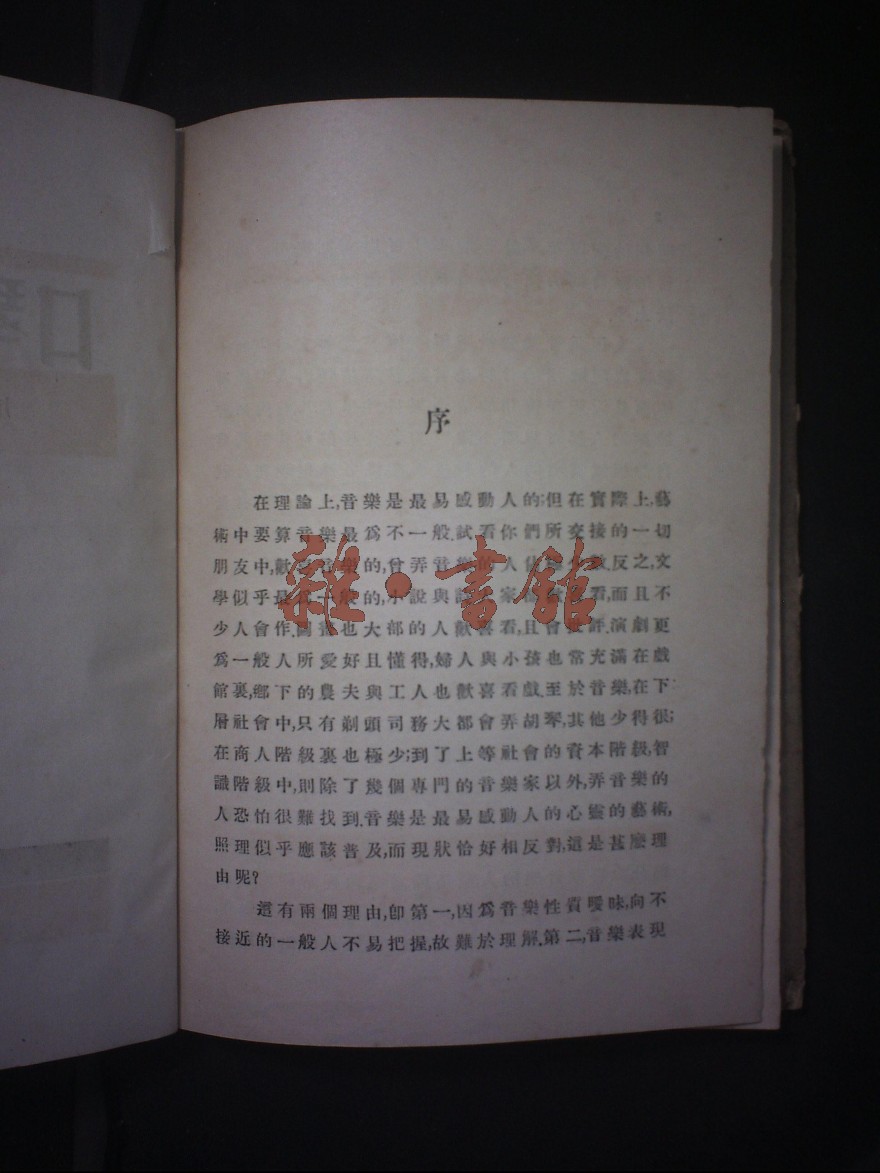 口
序
在理論上,音樂是最易感動人的;但在實際上,藝
術中要算音樂最爲不一般.試看你們所交接的一切
朋友中,歡喜音樂的,曾弄音樂的人佔極少數.反之,文
學似乎最爲一般的,小說與詩人家都歡喜看,而且不
少人會作.圖畫也大部的人歡喜看,且會批評.演劇更
爲一般人所愛好且懂得,婦人與小孩也常充滿在戲
館裏,鄉下的農夫與工人也歡喜看戲.至於音樂,在下
層社會中,只有剃頭司務大都會弄胡琴,其他少得很;
在商人階級裏也極少;到了上等社會的資本階級,智
識階級中,則除了幾個專門的音樂家以外,弄音樂的
人恐怕很難找到.音樂是最易感動人的心靈的藝術,
照理似乎應該普及,而現狀恰好相反對,這是甚麽理
由呢?
這有兩個理由,卽第一,因爲音樂性質曖昧,向不
接近的一般人不易把握,故難於理解.第二,音樂表現
雜·書館